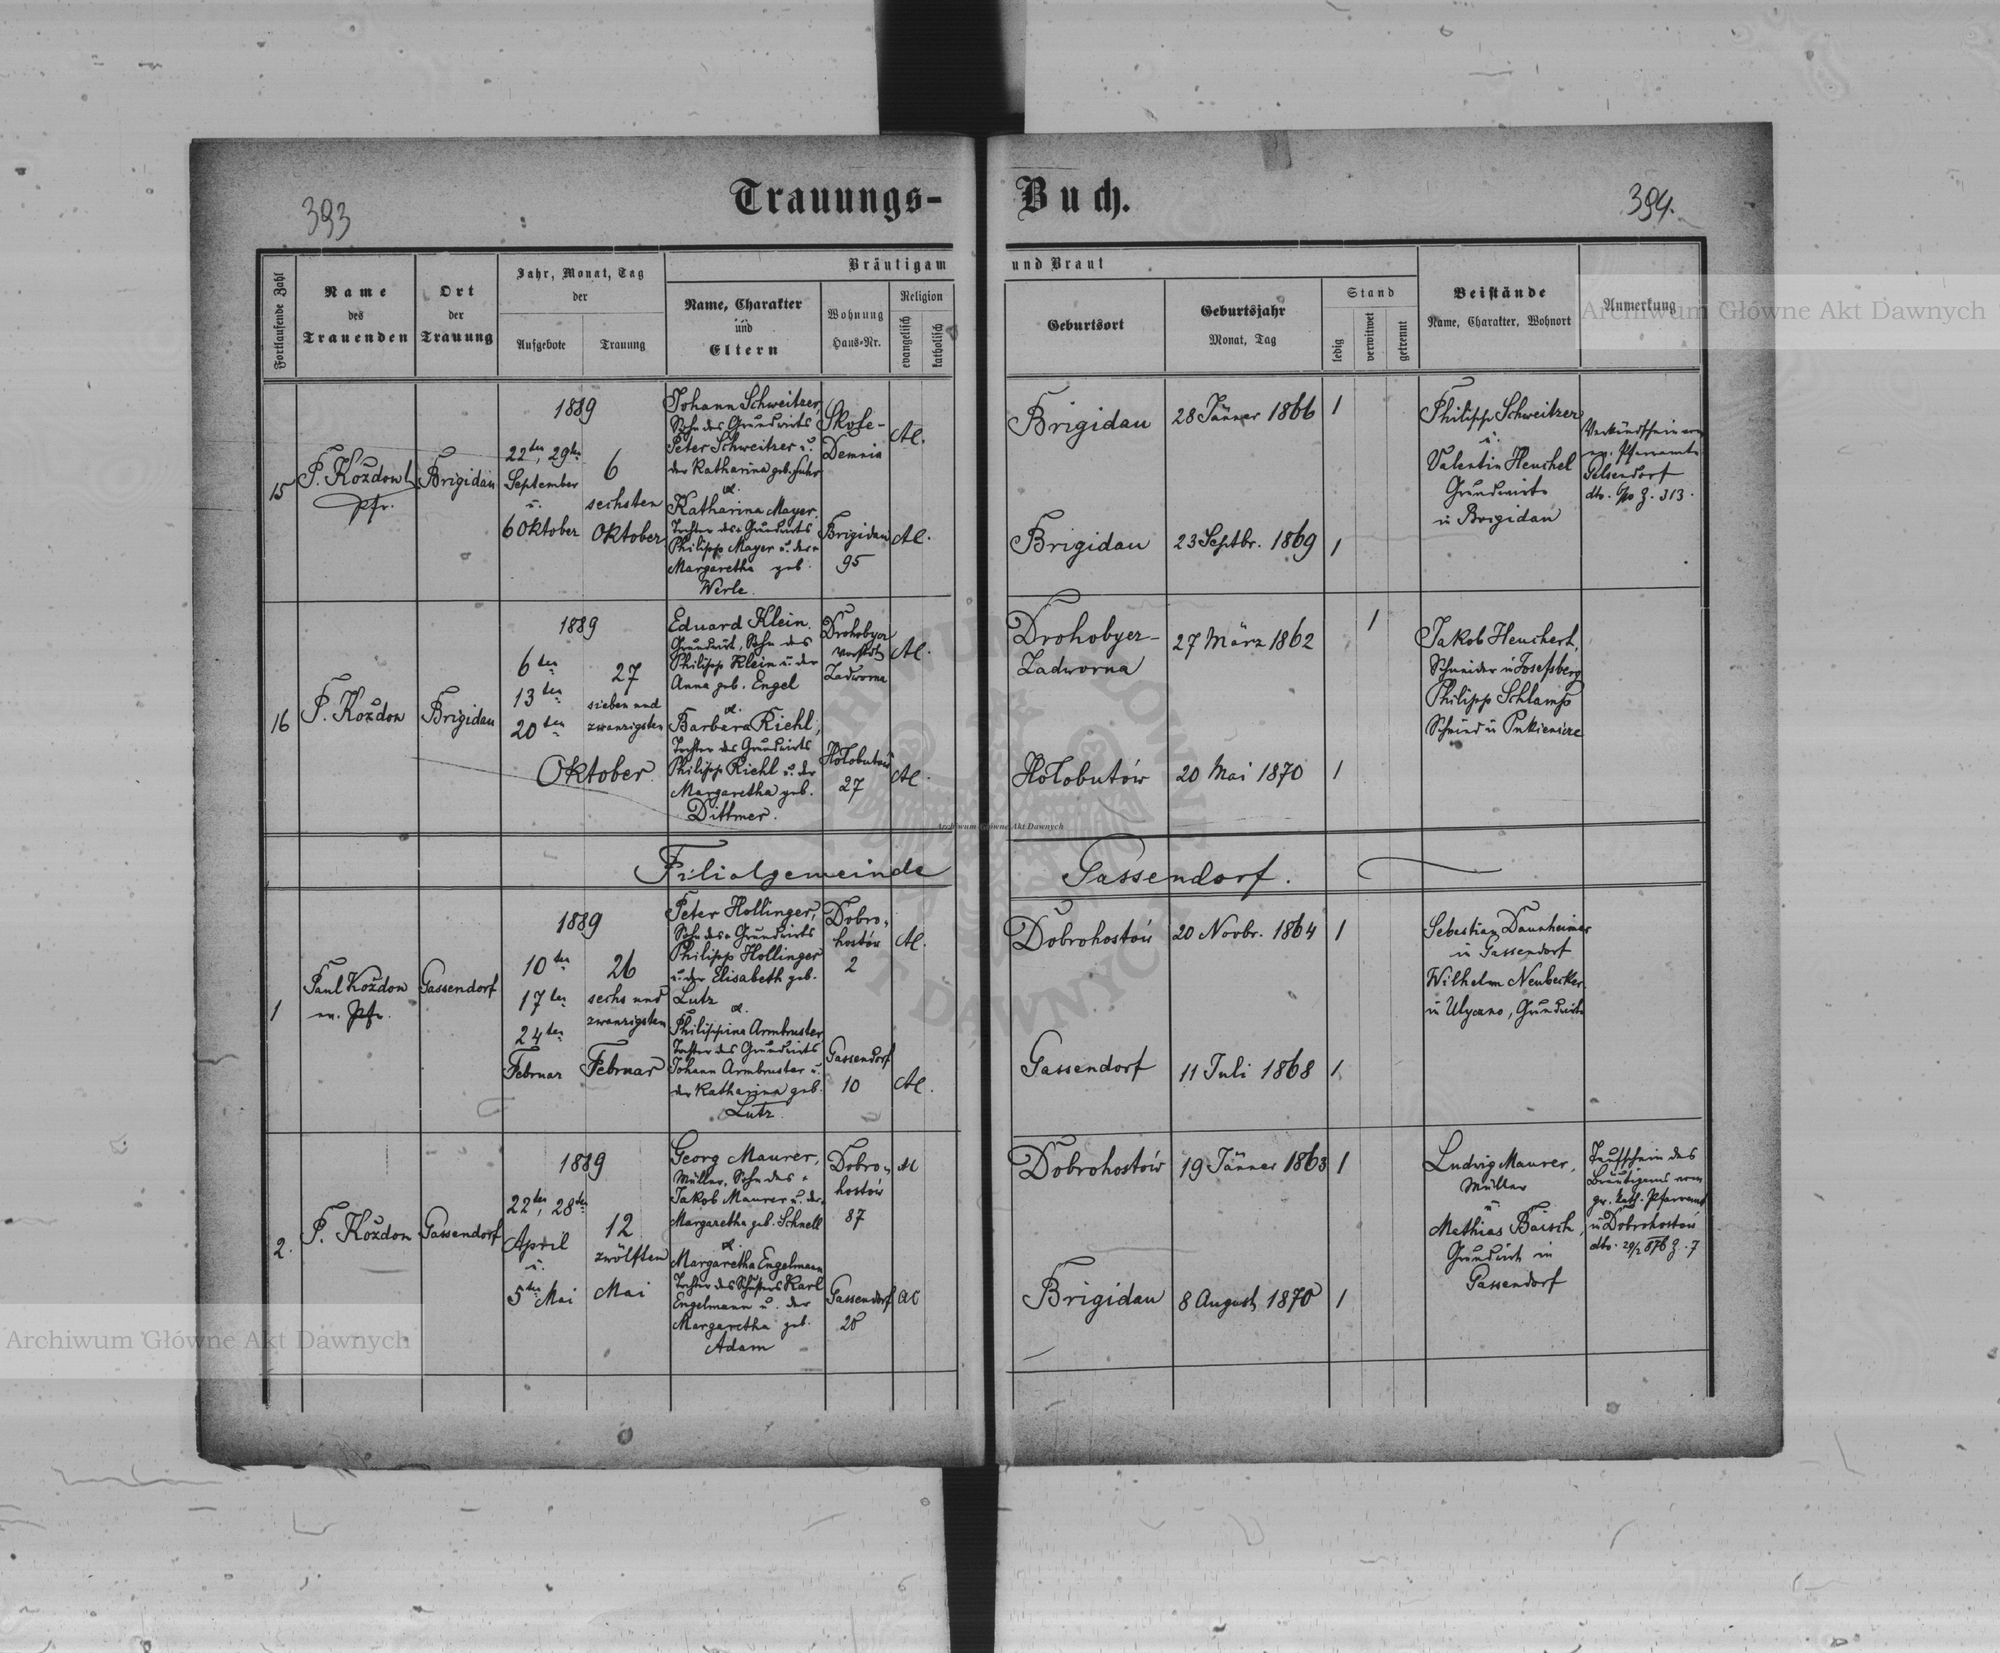 393
Trauungs-
Buch.
394.
Fortlaufende Zahl
Name
des
Trauenden
Ort
der
Trauung
Jahr, Monat, Tag
der
Aufgebote
Trauung
Bräutigam
und Braut
Name, Charakter
und
Eltern
Wohnung
Haus-Nr.
Religion
evangelisch
katholisch
Geburtsort
Geburtsjahr
Monat, Tag
Stand
ledig
verwitwet
getrennt
Beistände
Name, Charakter, Wohnort
Anmerkung
15
P. Kozdon
Pfr.
Brigidau
1889
22ten, 29ten
September
u.
6 Oktober
6
sechsten
Oktober
Johann Schweitzer,
Sohn des Grundwirts
Peter Schweitzer u.
der Katharina geb. Fuhr
&.
Katharina Mayer.
Tochter des Grundwirts
Philipp Mayer u. der
Margaretha geb.
Werle.
Skole-
Demnia
Brigidau
95
AC.
AC.
Brigidau
28 Jänner 1866
1
Brigidau
23 Septbr. 1869
1
Philipp Schweitzer
u.
Valentin Heuchel
Grundwirte
in Brigidau
Verkündschein vom
ev. Pfarramte
Gelsendorf
dto. 6/10 Z. 313.
16
P. Kozdon
Brigidau
1889
6ten
13ten
20ten
27
sieben und
zwanzigsten
Oktober.
Eduard Klein.
Grundwirt, Sohn des
Philipp Klein u. der
Anna geb. Engel
&.
Barbara Riehl,
Tochter des Grundwirts
Philipp Riehl u. der
Margaretha geb.
Dittmer.
Drohobycz
Vorstdt
Zadworna
Hołobutów
27
AC.
AC.
Drohobycz-
Zadworna
27 März 1862
1
Hołobutów
20 Mai 1870
1
Jakob Heuchert,
Schneider in Josefsberg
Philipp Schlamp
Schmied in Pukienicze
Filialgemeinde
Gassendorf.
1
Paul Kozdon
ev. Pfr.
Gassendorf
1889
10ten
17ten
24ten
Februar
26
sechs und
zwanzigsten
Februar
Peter Hollinger,
Sohn des Grundwirts
Philipp Hollinger
u. der Elisabeth geb.
Lutz
&.
Philippina Armbruster
Tochter des Grundwirts
Johann Armbruster u.
der Katharina geb.
Lutz.
Dobro-
hostów
2
Gassendorf
10
AC.
AC.
Dobrohostów
20 Novbr. 1864
1
Gassendorf
11 Juli 1868
1
Sebastian Dannheimer
in Gassendorf
Wilhelm Neubecker
in Ulyczno, Grundwirte
2.
P. Kozdon
Gassendorf
1889
22ten, 28ten
April
u.
5ten Mai
12
zwölften
Mai
Georg Maurer,
Müller, Sohn des
Jakob Maurer u. der
Margaretha geb. Schnell
&.
Margaretha Engelmann
Tochter des Schusters Karl
Engelmann u. der
Margaretha geb.
Adam
Dobro-
hostów
87
Gassendorf
28
AC
AC
Dobrohostów
19 Jänner 1863
1
Brigidau
8 August 1870
1
Ludwig Maurer,
Müller
u.
Mathias Baisch,
Grundwirt in
Gassendorf
Taufschein des
Bräutigams vom
gr. kath. Pfarramt
in Dobrohostów
dto. 29/2 876 Z. 7
Archiwum Główne Akt Dawnych
Archiwum Główne Akt Dawnych
Archiwum Główne Akt Dawnych